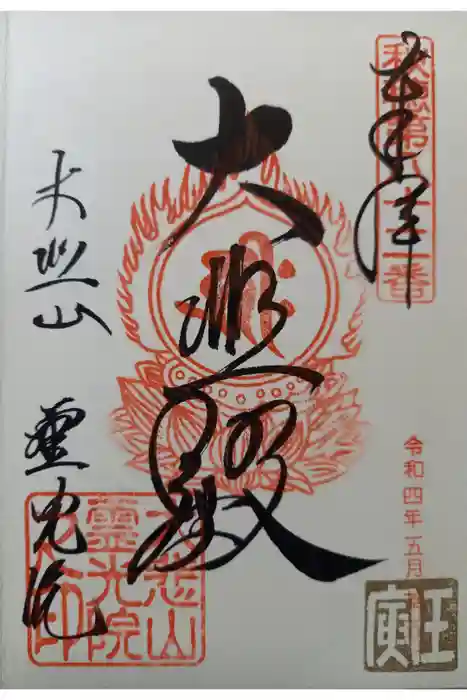 奉拝
番
大悲殿
大悲山
靈光院
大悲山
靈光院
印
令和四年五月
壬寅